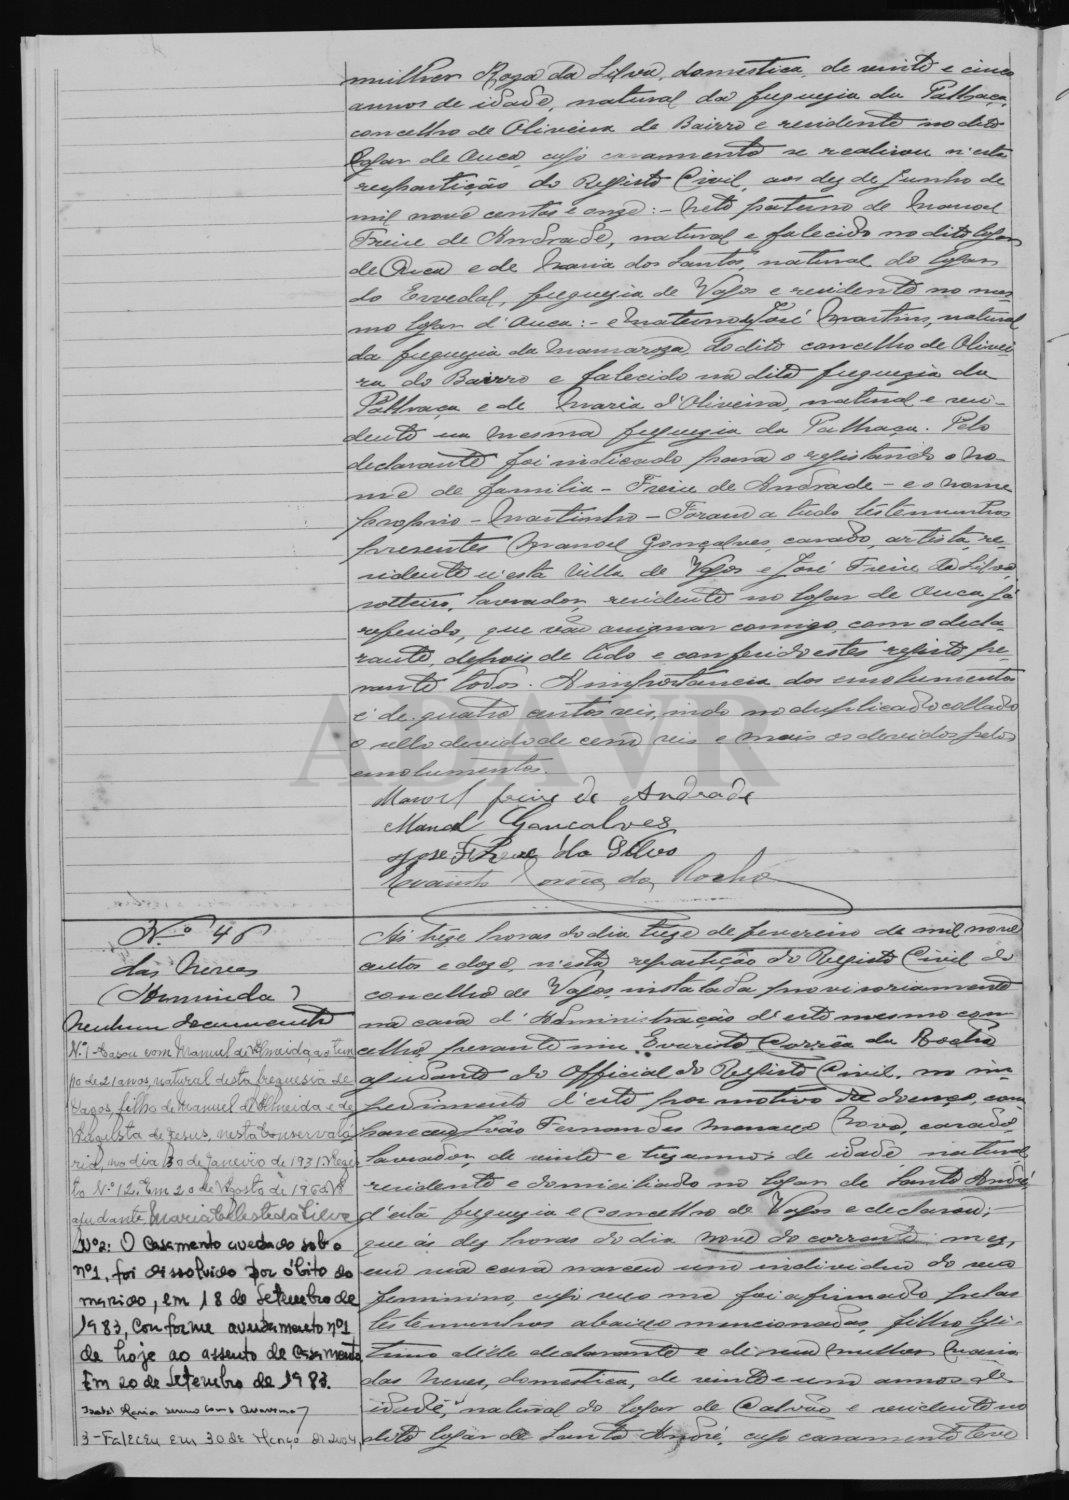 mulher Roza da Silva, domestica, de vinte e cinco
annos de idade, natural da freguezia da Palhaça,
concelho de Oliveira do Bairro e residente no dito
logar de Ouca, cujo casamento se realisou n'esta
repartição do Registo Civil, aos dez de Junho de
mil nove centos e onze :- Neto paterno de Manoel
Freire de Andrade, natural e falecido no dito logar
de Ouca e de Maria dos Santos, natural do logar
do Ervedal, freguezia de Vagos e residente no mes-
mo logar d'Ouca :- e materno de José Martins, natural
da freguezia da Mamarroza, do dito concelho de Olivei
ra do Bairro e falecido na dita freguezia da
Palhaça e de Maria d'Oliveira, natural e resi-
dente na mesma freguezia da Palhaça. Pelo
declarante foi indicado para o registando o no-
me de familia - Freire de Andrade - e o nome
proprio - Martinho - Foram a tudo testemunhas
presentes Manoel Gonçalves, casado, artista, re-
sidente n'esta Villa de Vagos e José Freire da Silva,
solteiro, lavrador, residente no logar de Ouca já
referido, que vão assignar commigo, com o decla-
rante, depois de lido e conferido este registo pe-
rante todos. A importancia dos emolumentos
é de quatro centos reis, indo no duplicado collado
o sello devido de cem reis e mais os devidos pelos
emolumentos.
Manoel freire de Andrade
Manoel Gonçalves
José Freire da Silva
Evaristo Corrêa da Rocha
N.º 46
das Neves
(Arminda)
Nenhum documento
N.º 1 - Casou com Manuel de Almeida, ao tem
po de 21 anos, natural desta freguesia de
Vagos, filho de Manuel de Almeida e de
Augusta de Jesus, nesta Conservató
ria, no dia 30 de Janeiro de 1931. Regis
to N.º 12. Em 20 de Agosto de 1960.
ajudante, Maria Celeste da Silva
Nº 2: O casamento averbado sob o
nº 1, foi dissolvido por óbito do
marido, em 18 de Setembro de
1983, conforme averbamento nº 1
de hoje ao assento de casamento.
Em 20 de Setembro de 1983.
3 - Faleceu em 30 de Março de 2004.
Ás treze horas do dia treze de fevereiro de mil nove
centos e doze, n'esta repartição do Registo Civil do
concelho de Vagos, installada provisoriamente
na casa d'Administração d'este mesmo con-
celho, perante mim Evaristo Corrêa da Rocha
ajudante do Official do Registo Civil, no im-
pedimento d'este por motivo de doença, com
pareceu João Fernandes Novo, casado,
lavrador, de vinte e tres annos de idade natural,
residente e domiciliado no logar de Santo André,
d'esta freguezia e concelho de Vagos e declarou :-
que ás dez horas do dia nove do corrente mez,
em sua casa nasceu um individuo do sexo
feminino, cujo sexo me foi afirmado pelas
testemunhas abaixo mencionadas, filho legi-
timo d'elle declarante e de sua mulher Maria
das Neves, domestica, de vinte e um annos de
idade, natural do logar de Calvão e residente no
dito logar de Santo André, cujo casamento teve
ADAVR